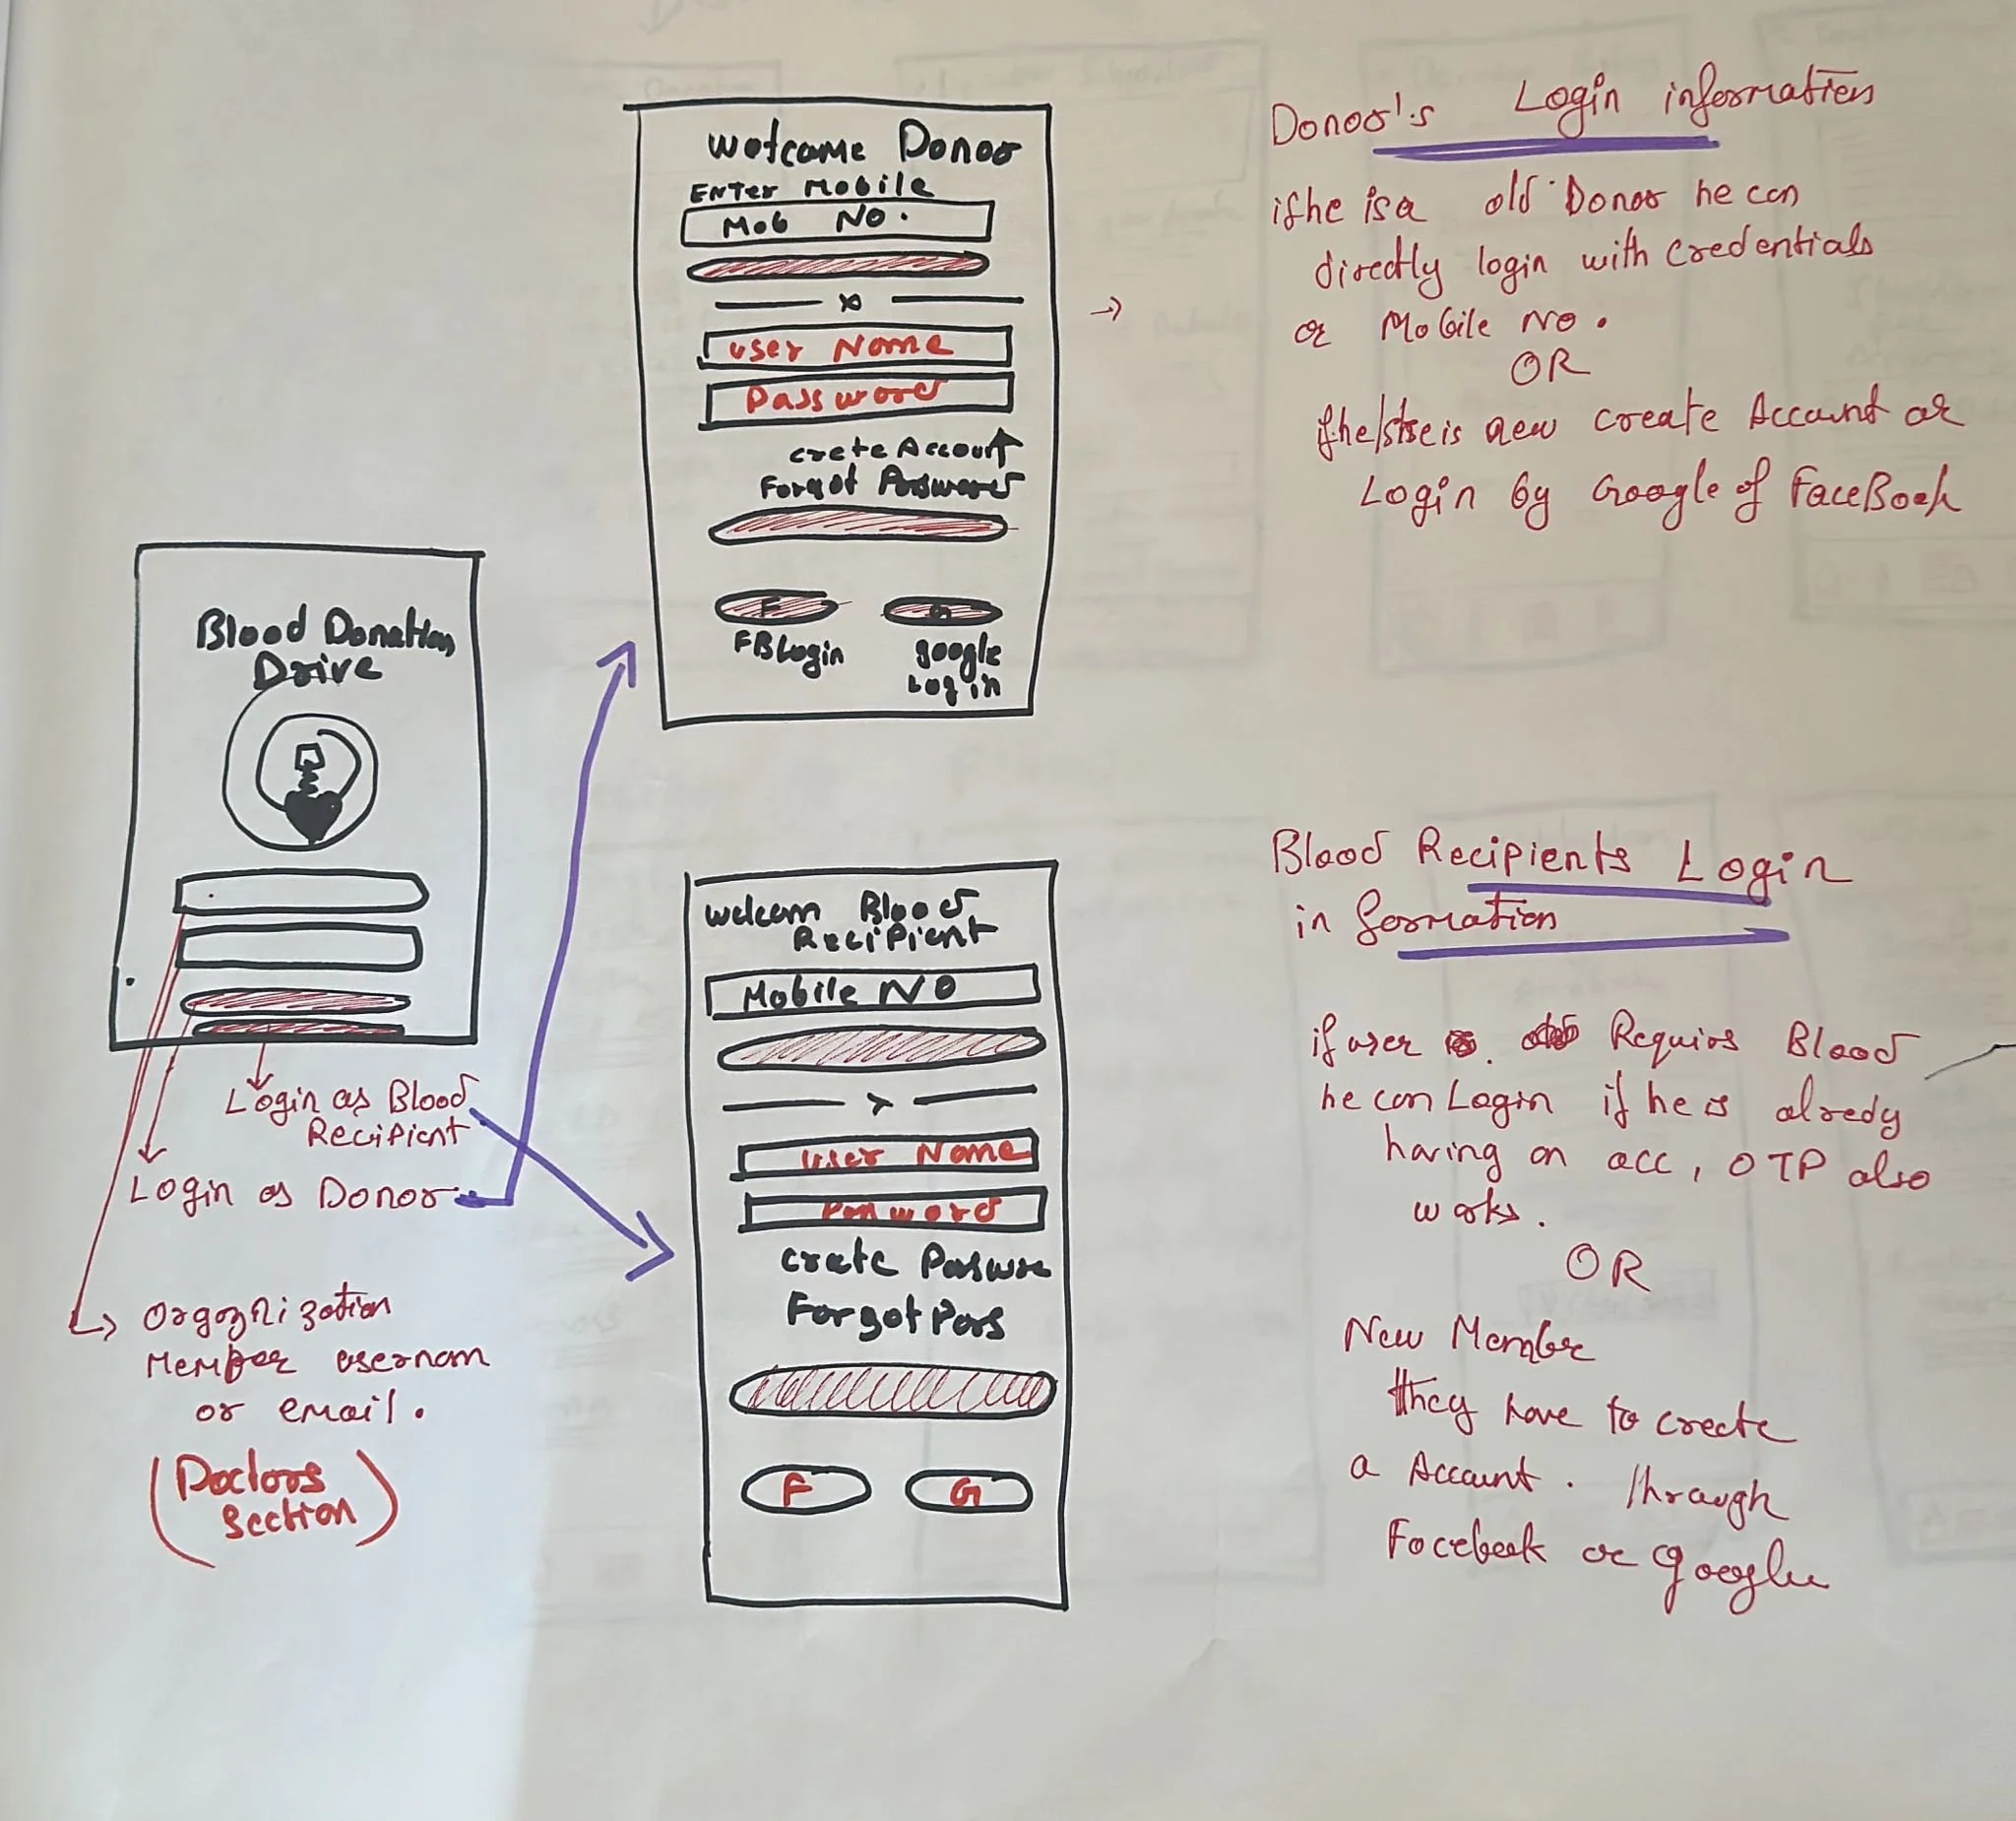 Blood Donation
Drive
Login as Blood
Recipient
Login as Donor
Orgoznization
Member usernam
or email.
(Doctors
Section)
welcome Donor
Enter Mobile
Mob No.
User Name
Password
Crete Account
Forgot Password
F
G
FB Login
google
Login
welcom Blood
Recipient
Mobile NO
User Name
Password
Crete
Forgot Pass
F
G
Donor's Login information
if he is a old Donor he can
directly login with credentials
or Mobile No.
OR
if he/she is new create Account or
Login by Google of FaceBook
Blood Recipients Login
information
if user Requirs Blood
he can Login if he is alredy
having an acc, OTP also
works.
OR
New Member
they have to create
a Account. Through
Facebook or google